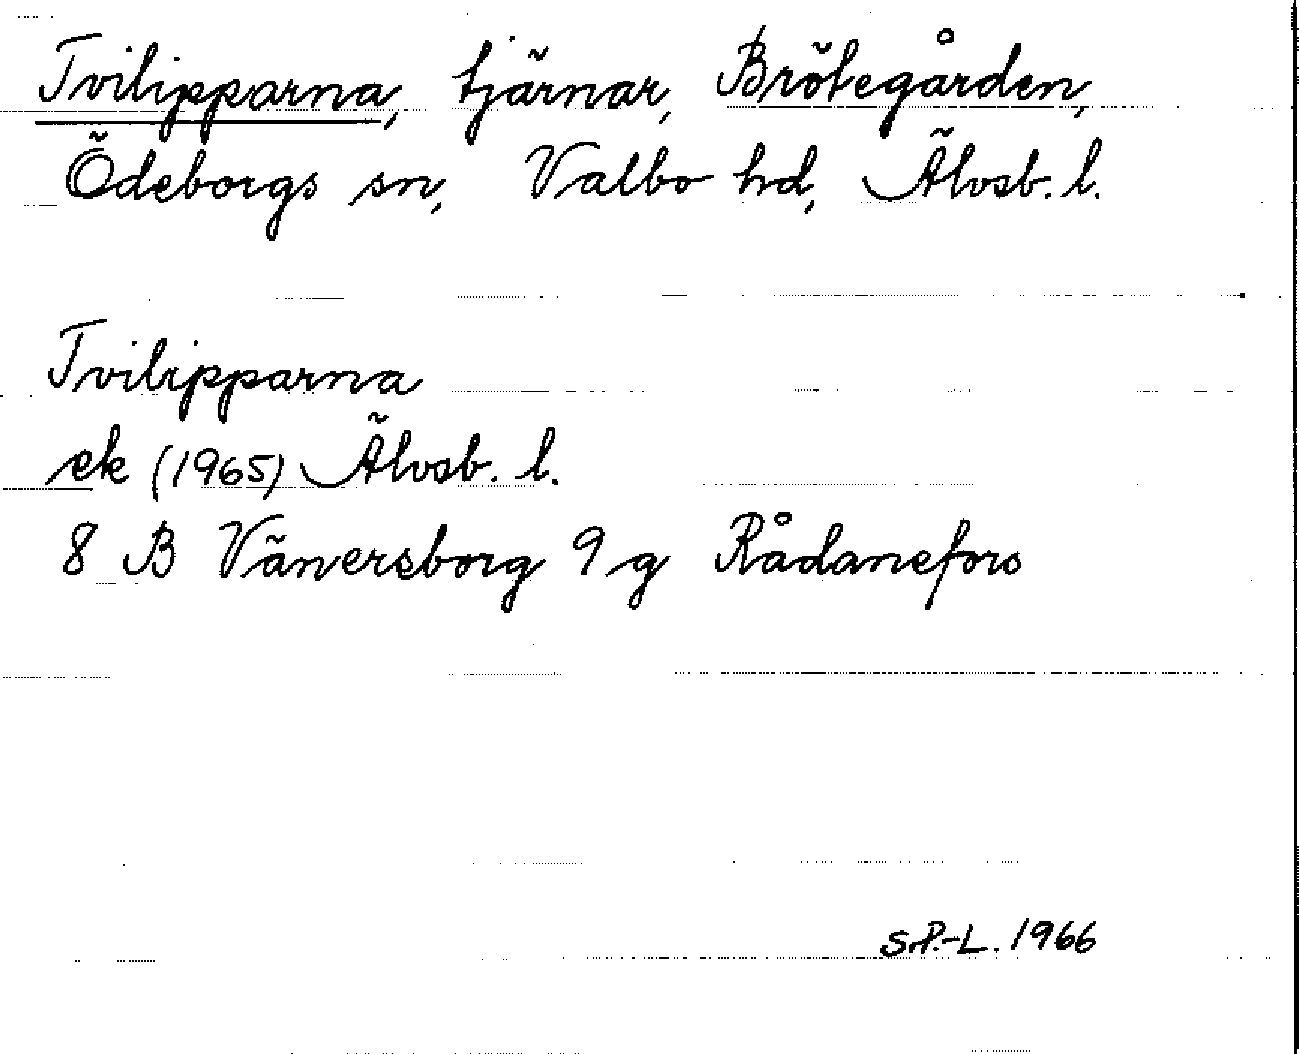 Tvilipparna, tjärnar, Brötegården,
Ödeborgs sn, Valbo hd, Älvsb. l.
Tvilipparna
ek (1965) Älvsb. l.
8 B Vänersborg 9 g Rådanefors
S.P.-L. 1966